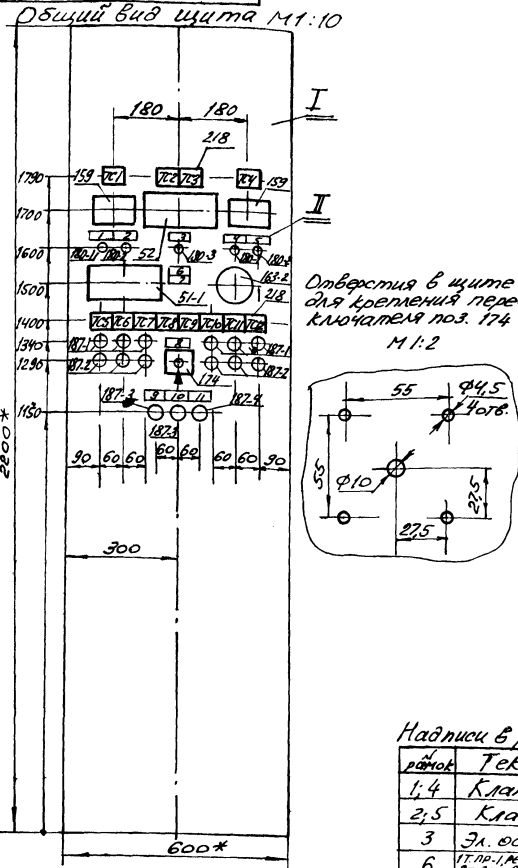 Общий вид щита М1:10
180 180
I
218
ТС1 ТС2 ТС3 ТС4
1790 159 159
1700
II
1 2 3 4 5
52
1600
180-3
6
7
163-2
1500
51-1
218
1400
ТС5 ТС6 ТС7 ТС8 ТС9 ТС10 ТС11 ТС12
1340
187-1 8 187-1
1290
187-2 187-2
174
187-3 9 10 11 187-4
1150
187-3
90 60 60 60 60 60 60 90
300
2200*
600*
Отверстия в щите
для крепления пере
ключателя поз. 174
М1:2
55
Ф4,5
4отв.
55
Ф10
27,5
27,5
Надписи в
№ рамок Тек
1;4 Кла
2;5 Кла
3 Эл. ос
6